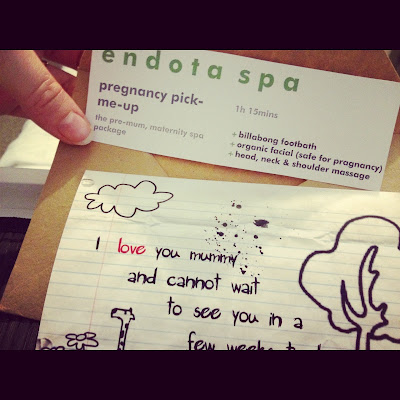 endota spa
pregnancy pick-
me-up
1h 15mins
the pre-mum, maternity spa
package
+ billabong footbath
+ organic facial (safe for pragnancy)
+ head, neck & shoulder massage
I love you mummy
and cannot wait
to see you in a
few weeks